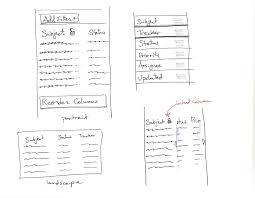 Add Filter +
Subject Status
Reorder Columns
portrait
Subject
Tracker
Status
Priority
Assignee
Updated
Subject Status Tracker
landscape
locked column
Subject